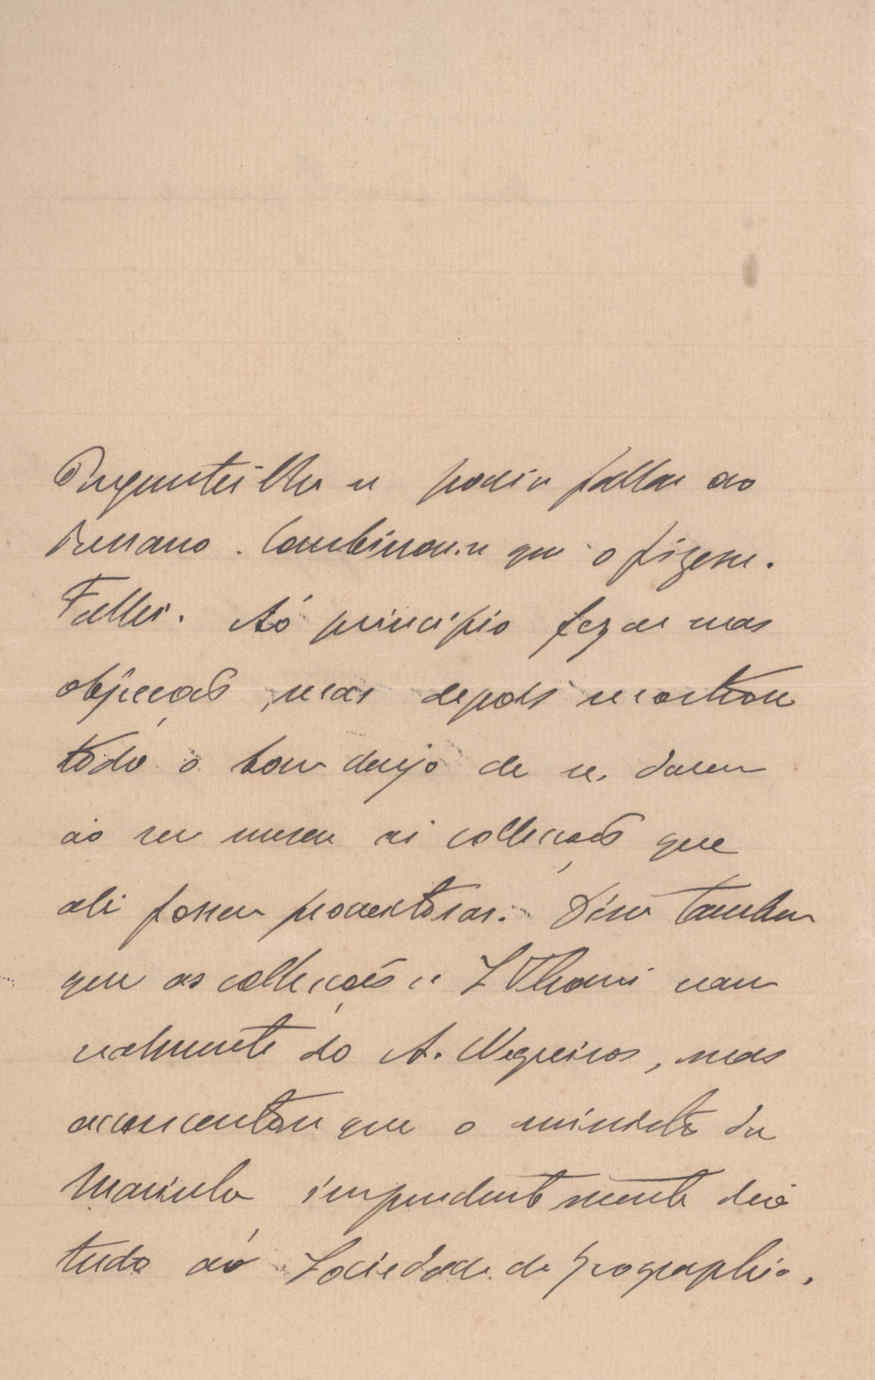 Perguntei lhe se podia fallar ao
Bensaude. Combinamos que o fizesse.
Fallei. Ao principio fez-me umas
objecções, mas depois mostrou
todo o bom desejo de se darem
ao seu museu as collecções que
ali fossem prometidas. Disse tambem
que as collecções de S. Thomé eram
realmente do A. Negreiros, mas
accrescentou que o ministro da
Marinha imprudentemente dera
tudo à Sociedade de Geographia.